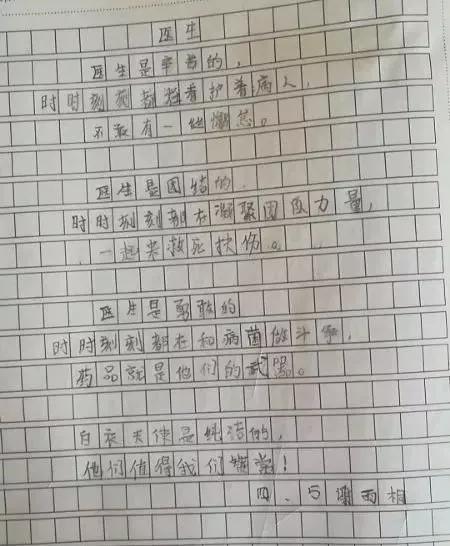 医生
医生是辛苦的,
时时刻刻都在看护着病人,
不敢有一他懒怠。
医生是团结的.
时时刻刻都在凝聚团队力量,
一起去救死扶伤。
医生是勇敢的
时时刻刻都在和病菌做斗争,
药品就是他们的武器。
白衣天使是纯洁的,
他们值得我们赞赏!
四、5 雨相